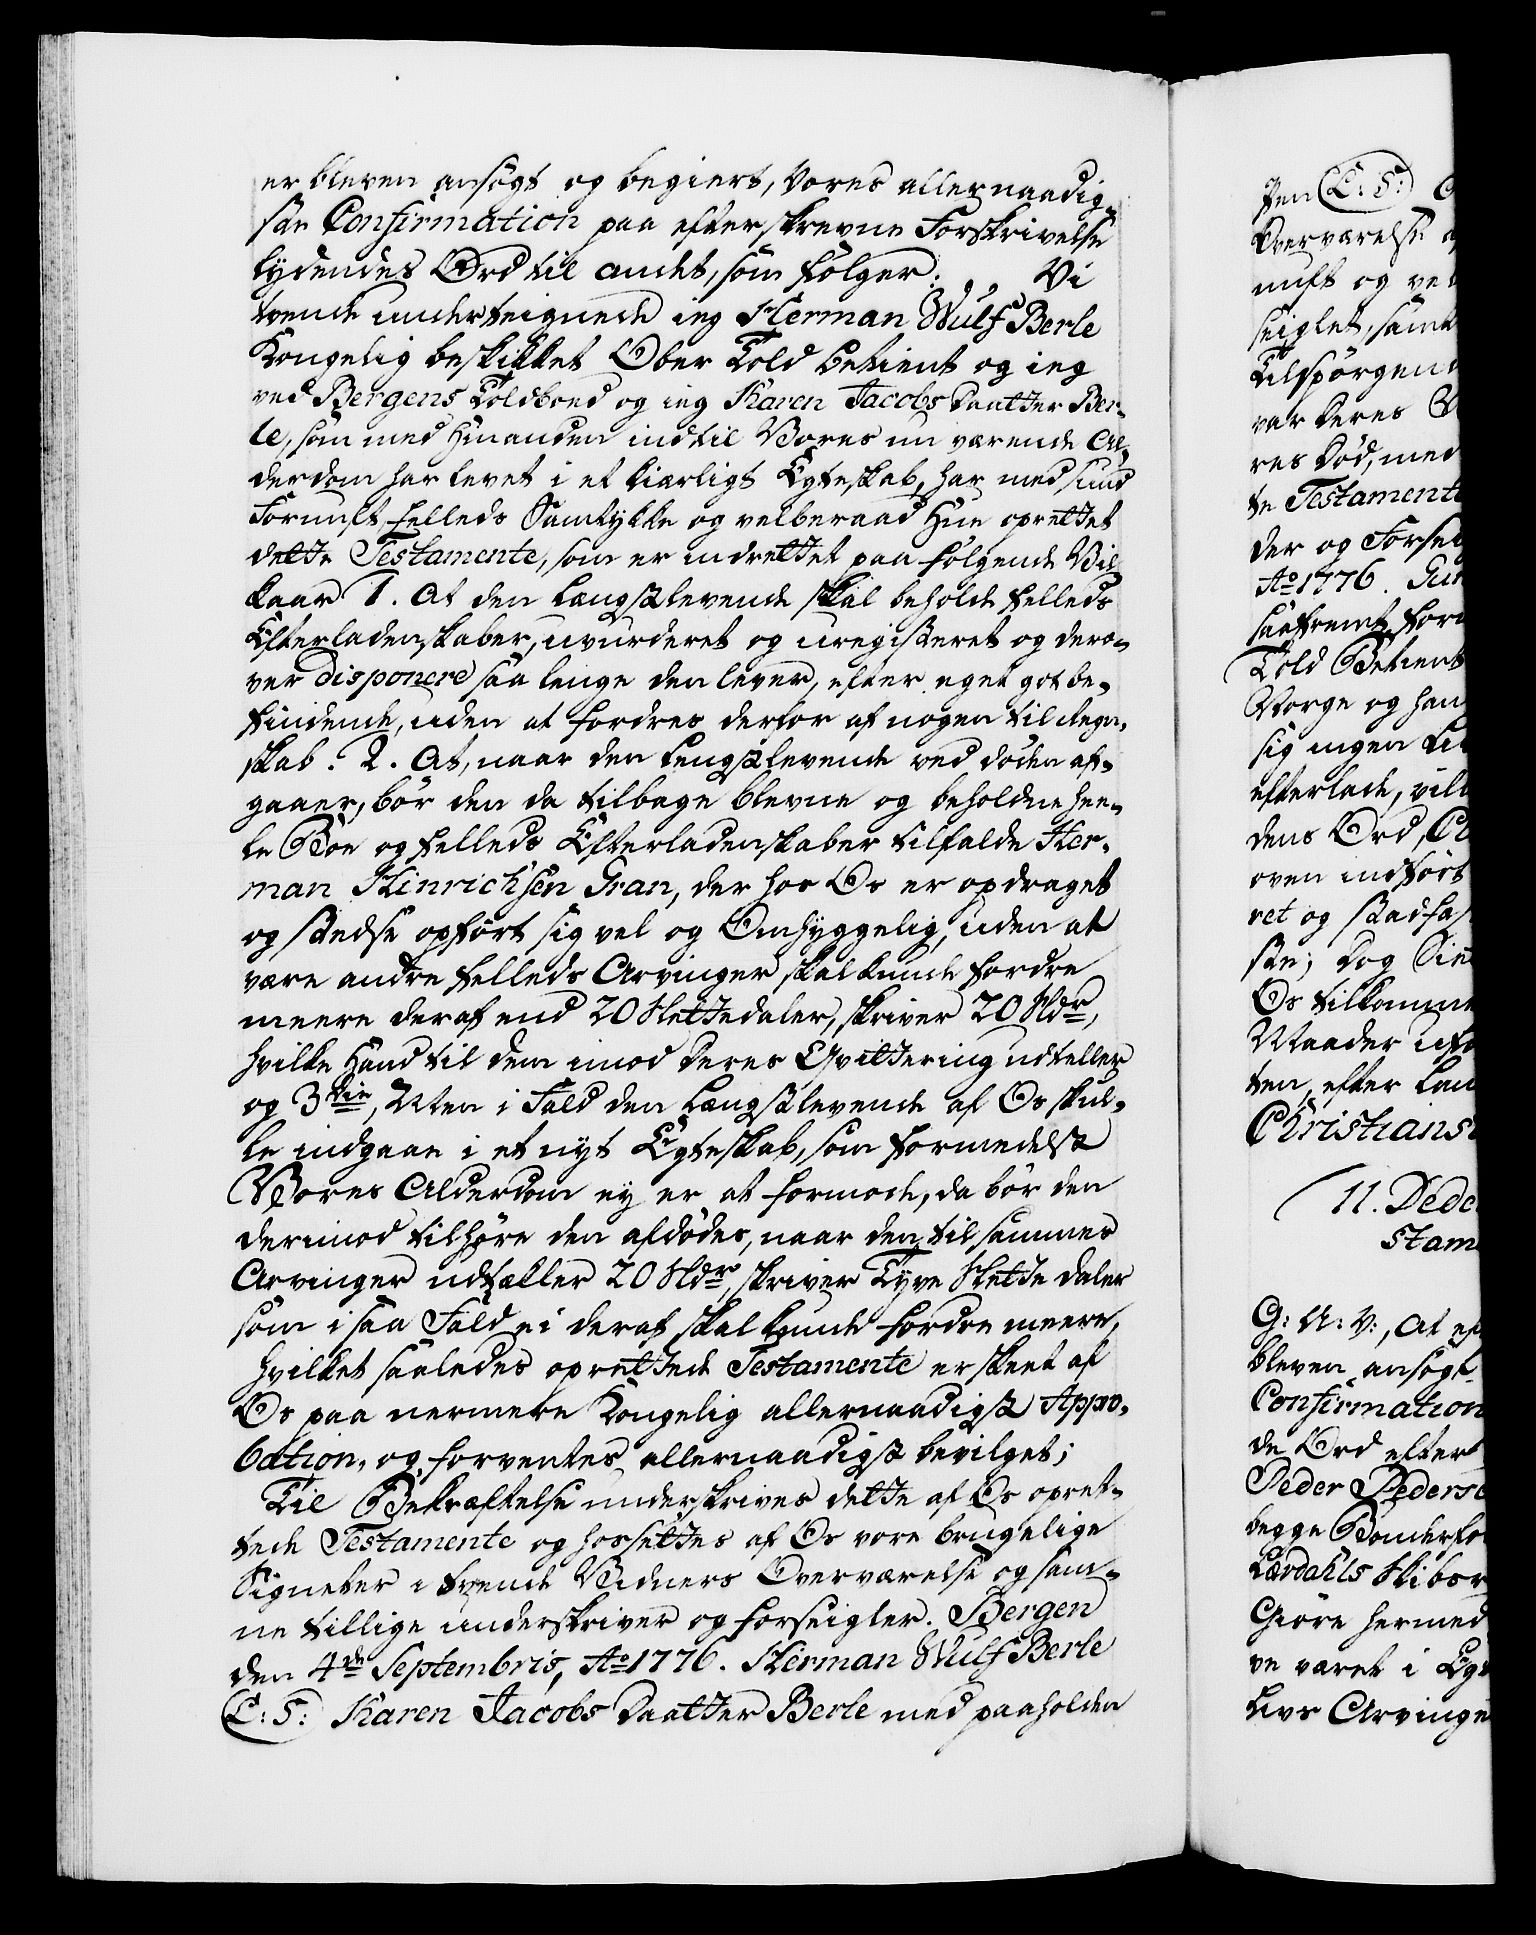 er bleven ansøgt og begiert, Vores allernaadig-
ste Confirmation paa efterskrevne Forskrivelse
lydendes Ord til andet, som følger: Vi
tvende underteignede ieg Herman Wulf Berle
Kongelig beskikket Ober Told betient og ieg
ved Bergens Toldboed og ieg Karen Jacobs Daatter Ber-
le, som med Hinanden indtil Vores nu værende Al-
derdom har levet i et kiærligt Egteskab, har med sund
Fornuft felleds Samtykke og velberaad Hue oprettet
dette Testamente, som er indrettet paa følgende Vil-
kaar 1. At den Længstlevende skal beholde felleds
Efterladenskaber, uvurderet og uregistreret og dero-
ver disponere saa lenge den lever, efter eget got be-
findende, uden at fordres derfor af nogen til Regn-
skab. 2. At, naar den Lengstlevende ved døden af-
gaaer, bør den da tilbage blevne og beholdne hee-
le Boe og felleds Efterladenskaber tilfalde Her-
man Hinrichsen Gran, der hos Os er opdraget
og stedse opført sig vel og Omhyggelig, uden at
være andre felleds Arvinger skal kunde fordre
meere deraf end 20 Slettedaler, skriver 20 Sldr,
hvilke Hand til dem imod deres Qvittering udteller
og 3die, Men i Fald den Længstlevende af Os skul-
le indgaae i et nyt Egteskab, som formedelst
Vores Alderdom ey er at formode, da bør den
derimod tilhøre den afdødes, naar den til sammes
Arvinger udtæller 20 Sldr, skriver Tyve Slette daler
som i saa Fald ei deraf skal kunde fordre meere,
hvilket saaledes oprettede Testamente er skeet af
Os paa nermere Kongelig allernaadigst Appro-
bation, og forventes allernaadigst bevilget;
Til Bekræftelse underskrives dette af Os opret-
tede Testamente og hossettes af Os vore brugelige
Signeter i tvende Vidners Overværelse og sam-
ne tillige underskriver og forseigler. Bergen
den 4de Septembris, Ao 1776. Herman Wulf Berle
(L: S:) Karen Jacobs Daatter Berle med paaholden
Pen (L: S:)
Overværelse
nuft og
seiglet, samt
Tilspørgen
var deres
res Død, med
te Testamente
der og
Ao 1776.
saafremt
Told Betient
Norge og han
sig ingen
efterlade,
dens Ord,
oven indført
ret og stadfæ
ste; Dog
Os tilkomme
Maader
ten, efter
Christians
11. Peder
stam
G: A: V:, At
bleven ansøgt
Confirmation
de Ord efter
Peder Peders
begge Bonderfo
Lærdahls Skibsr
Giøre hermed
ve været i Egt
Livs Arvinge